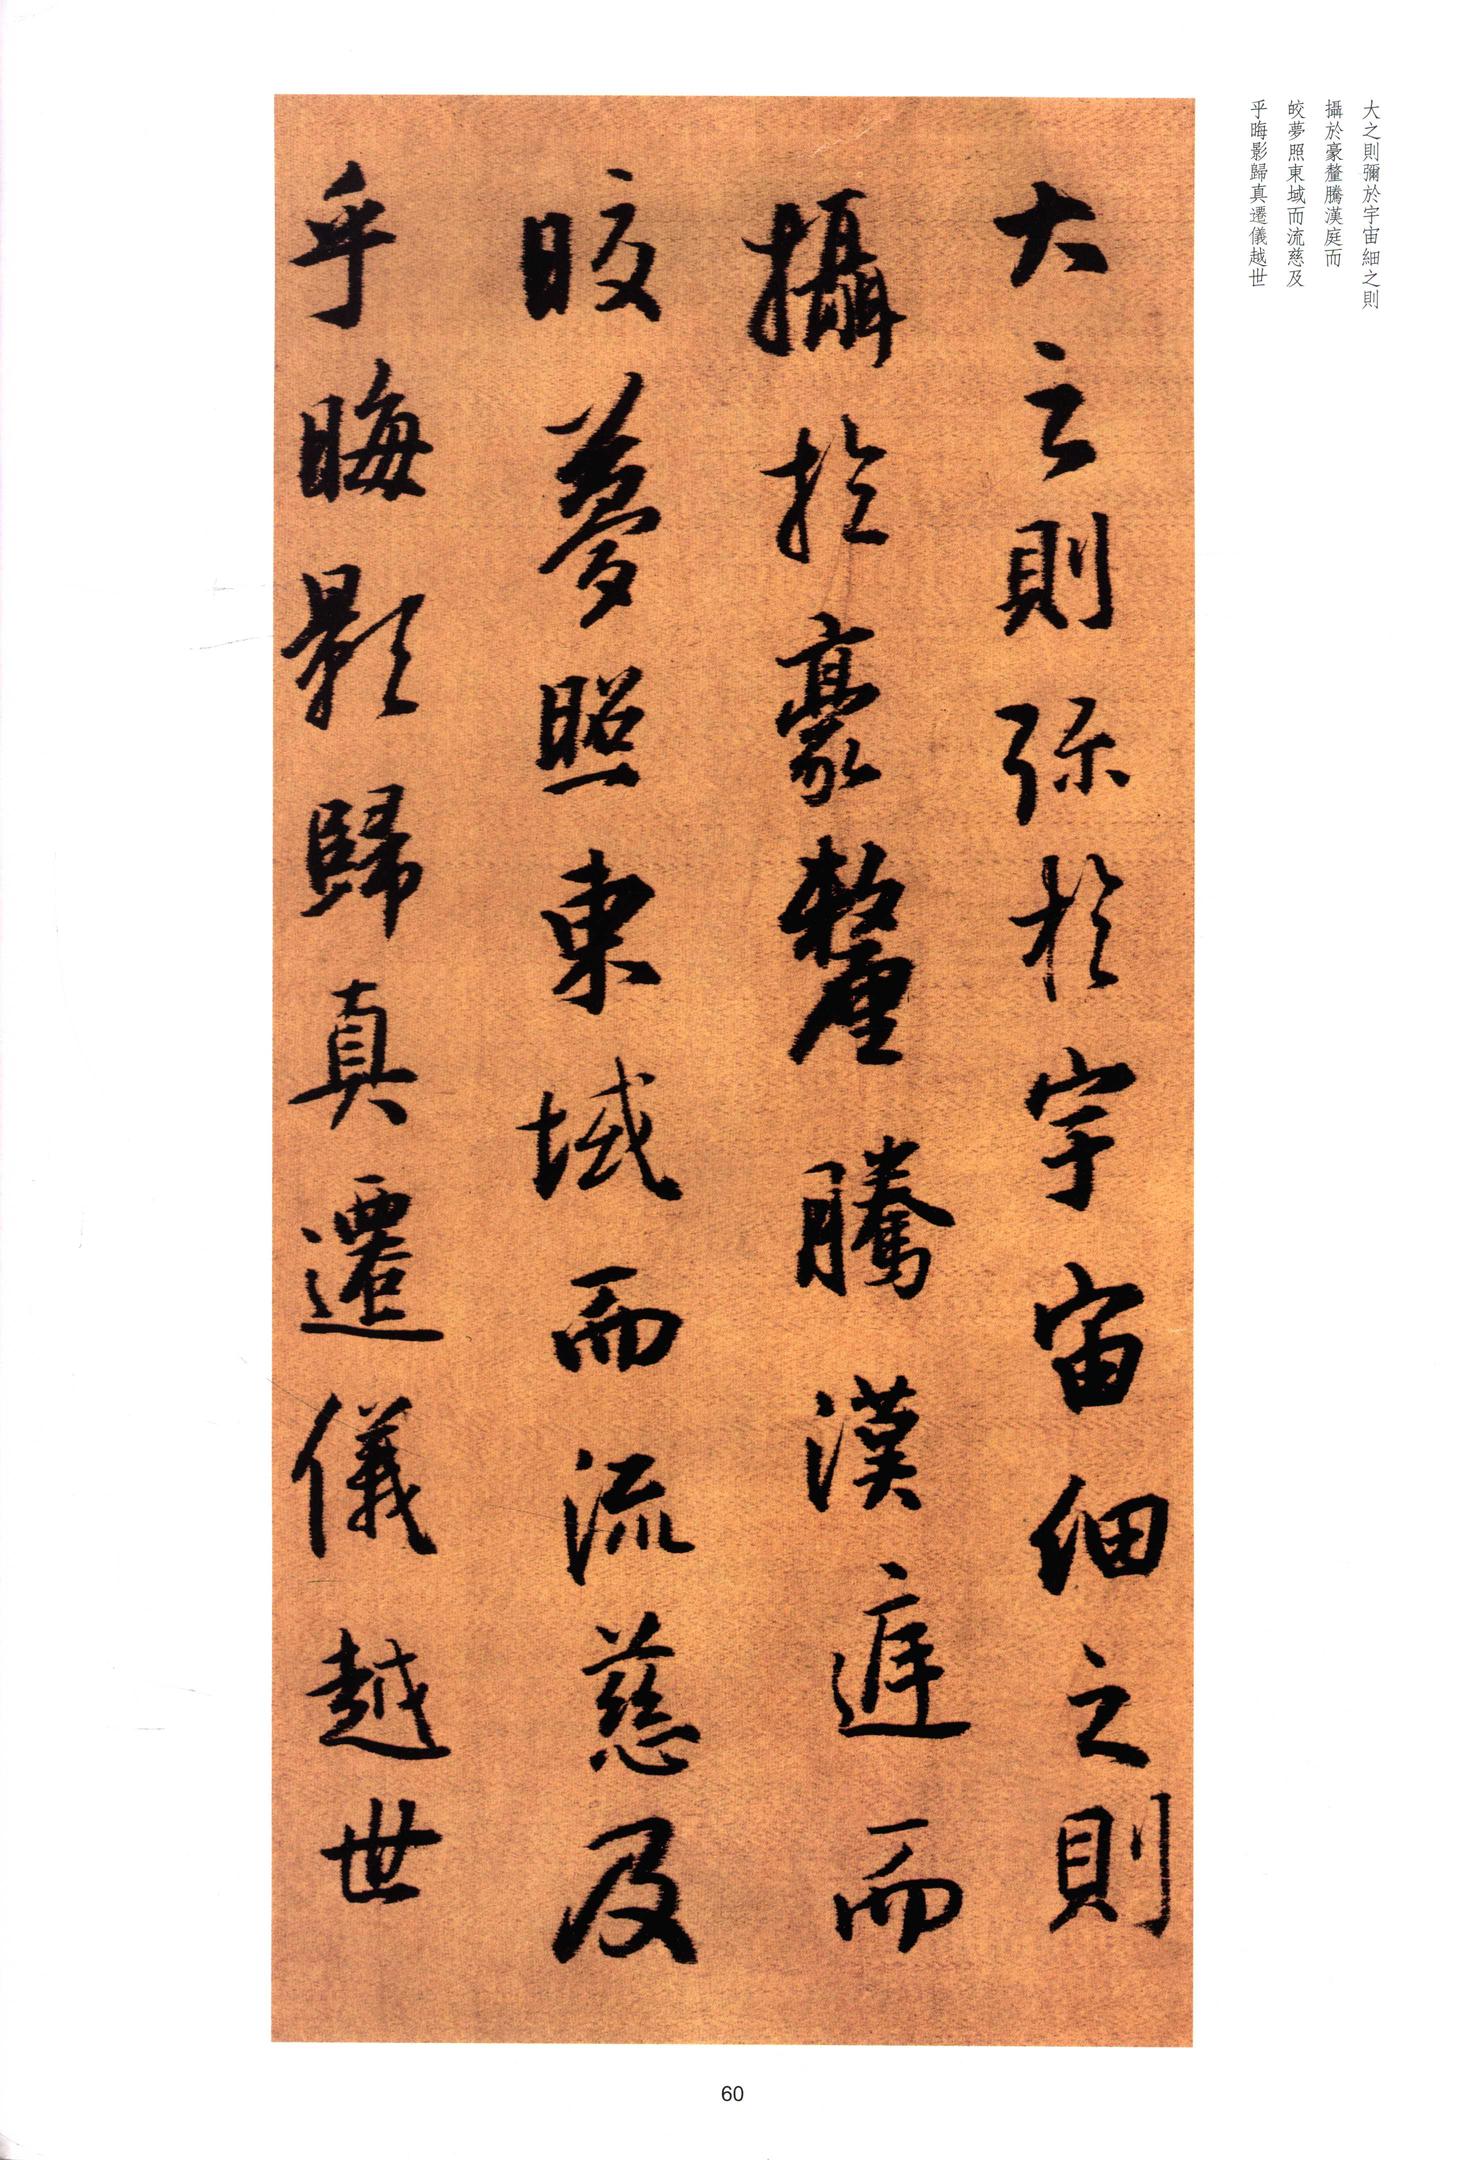 大之則彌於宇宙細之則
攝於豪釐騰漢庭而
皎夢照東域而流慈及
乎晦影歸真遷儀越世
大之則弥於宇宙細之則
攝於豪釐騰漢庭而
皎夢照東域而流慈及
乎晦影歸真遷儀越世
60